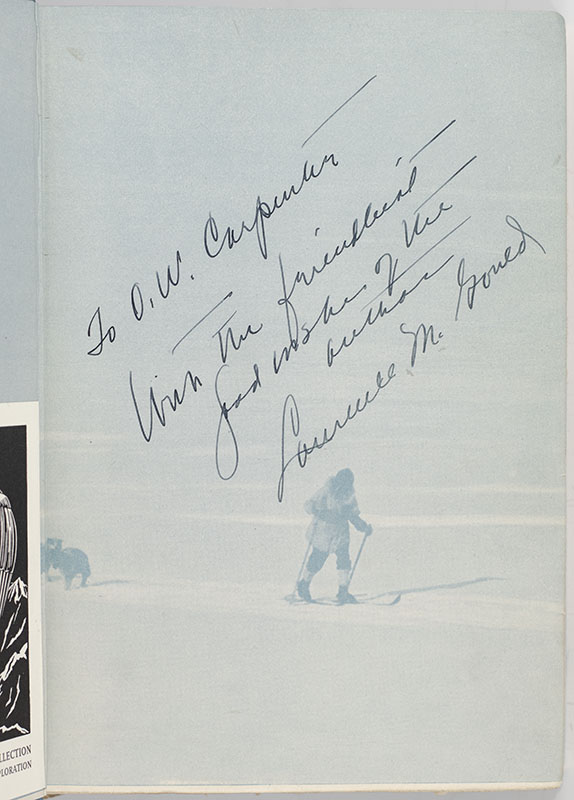 To O. W. Carpenter
With the friendliest
good wishes of the
author
Laurence M. Gould
LLECTION
PLORATION